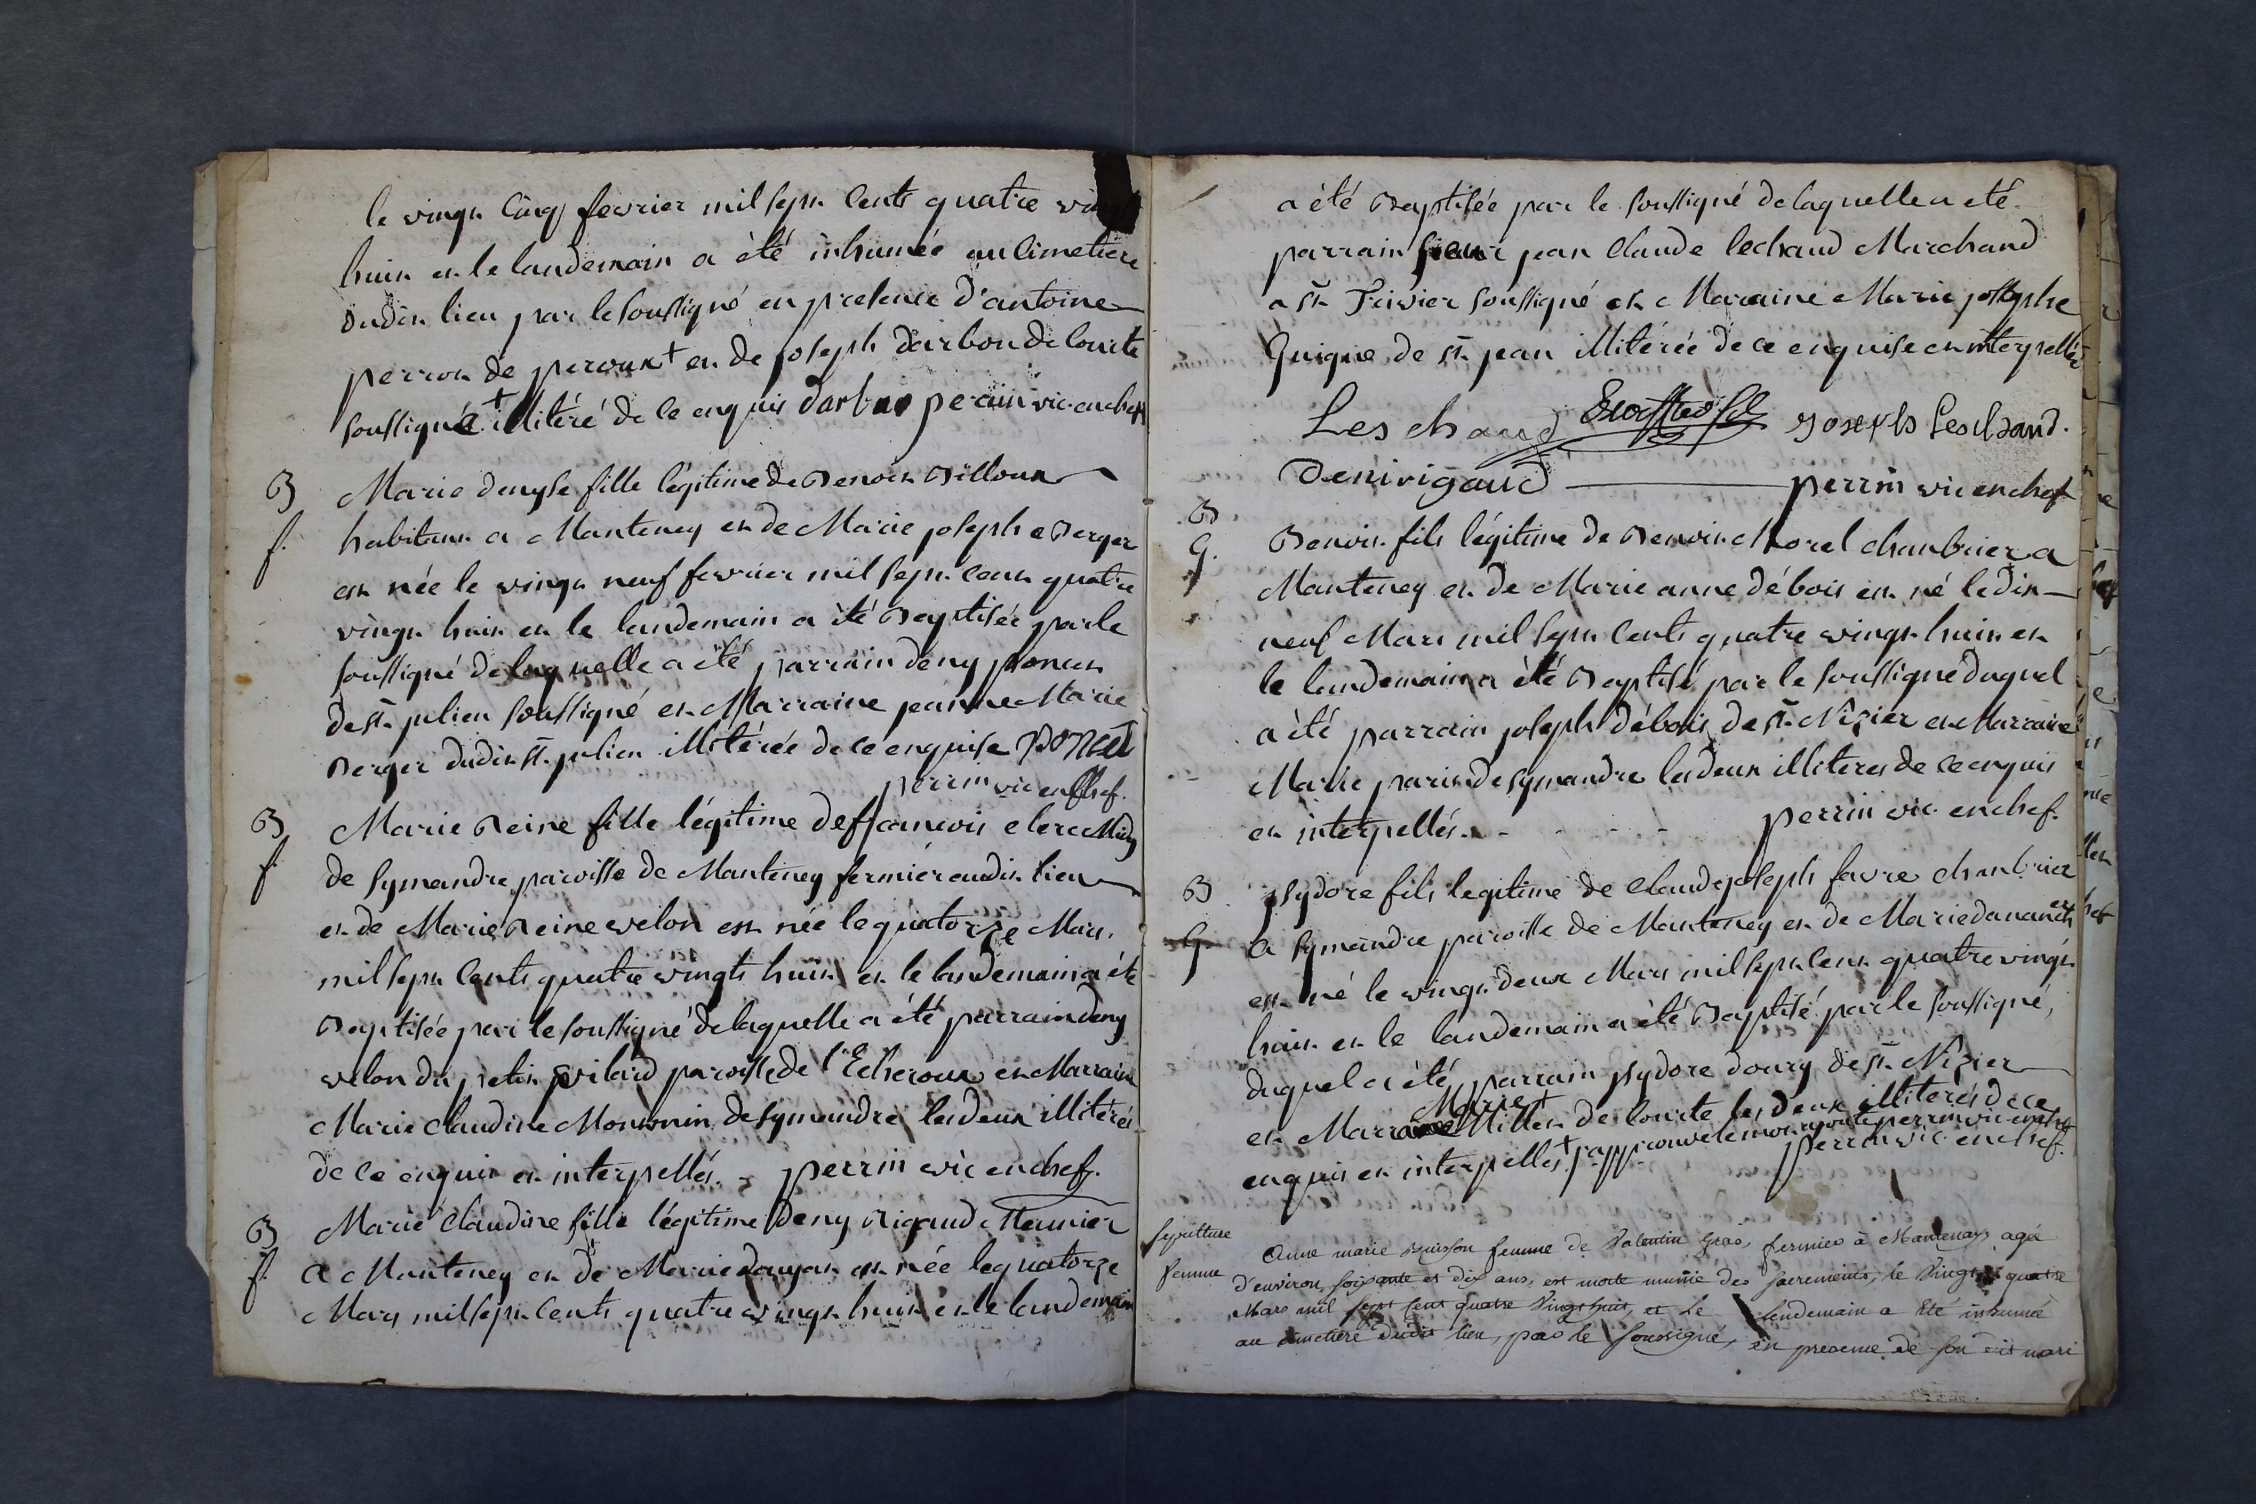 le vingt cinq fevrier mil sept cents quatre vingt
huit et le landemain a èté inhumée au cimetiere
dudit lieu par le soussigné en presence d'antoine
perron de peroux + et de joseph darbon de courte
soussigné + illitéré de ce enquis darbon perrin vic. en chef
B
f.
Marie denyse fille légitime de Benoit Billoux
habitant a Manteney et de Marie josephe Berger
est née le vingt neuf fevrier mil sept cent quatre
vingt huit et le landemain a èté Baptisée par le
soussigné de laquelle a èté parrain deny poncet
de st. julien soussigné et Marraine jeanne Marie
Berger dudit st. julien illitérée de ce enquise poncet
perrin vic en chef.
B
f
Marie Reine fille légitime de francois clerc
de symandre paroisse de Manteney fermiér audit lieu
et de Marie Reine velon est née le quatorze Mars
mil sept cents quatre vingts huit et le landemain a èté
Baptisée par le soussigné de laquelle a èté parrain deny
velon du petit vilard paroisse de l'Echeroux et Marraine
Marie claudine Monnin de symandre les deux illitérés
de ce enquis et interpellés. perrin vic en chef.
B
f.
Marie claudine fille légitime deny Rigaud Meunier
a Manteney et de Marie est née le quatorze
Mars mil sept cents quatre vingt huit et le landemain
a été Baptisée par le soussigné de laquelle a eté
parrain sieur jean claude lechaud Marchand
a st. Trivier soussigné et Maraine Marie josephe
Guigue de st. jean illitérée de ce enquise et interpellée
Leschaud joseph Leschaud.
Denirigaud perrin vic en chef
B
G.
Benoit fils légitime de Benoit Morel chanbrier a
Manteney et de Marie anne débois est né le dix
neuf Mars mil sept cents quatre vingt huit et
le landemain a èté Baptisé par le soussigné duquel
a èté parrain joseph débois de st. Nizier et Marraine
Marie paris de symandre les deux illiteres de ce enquis
et interpellés. perrin vic. en chef.
B
G
ysydore fils legitime de claude joseph favre chanbrier
a symandre paroisse de Manteney et de Marie
est né le vingt deux Mars mil sept cent quatre vingt
huit et le landemain a été Baptisé par le soussigné,
duquel a èté parrain ysydore doury de st. Nizier
et Marraine Marie + Millet de courte les deux illiterés de ce
enquis et interpellés + j'approuve le mot ajouté perrin vic. en chef
perrin vic. en chef.
sepulture
femme
Anne marie buisson femme de Valentin Gras, fermier à Mantenay, agée
d'environ soixante et dix ans, est morte munie des sacrements, le Vingt quatre
Mars mil sept cent quatre Vingt huit, et le lendemain a Eté inhumée
au cimetiere dudit lieu, par le soussigné, en presence de son dit mari